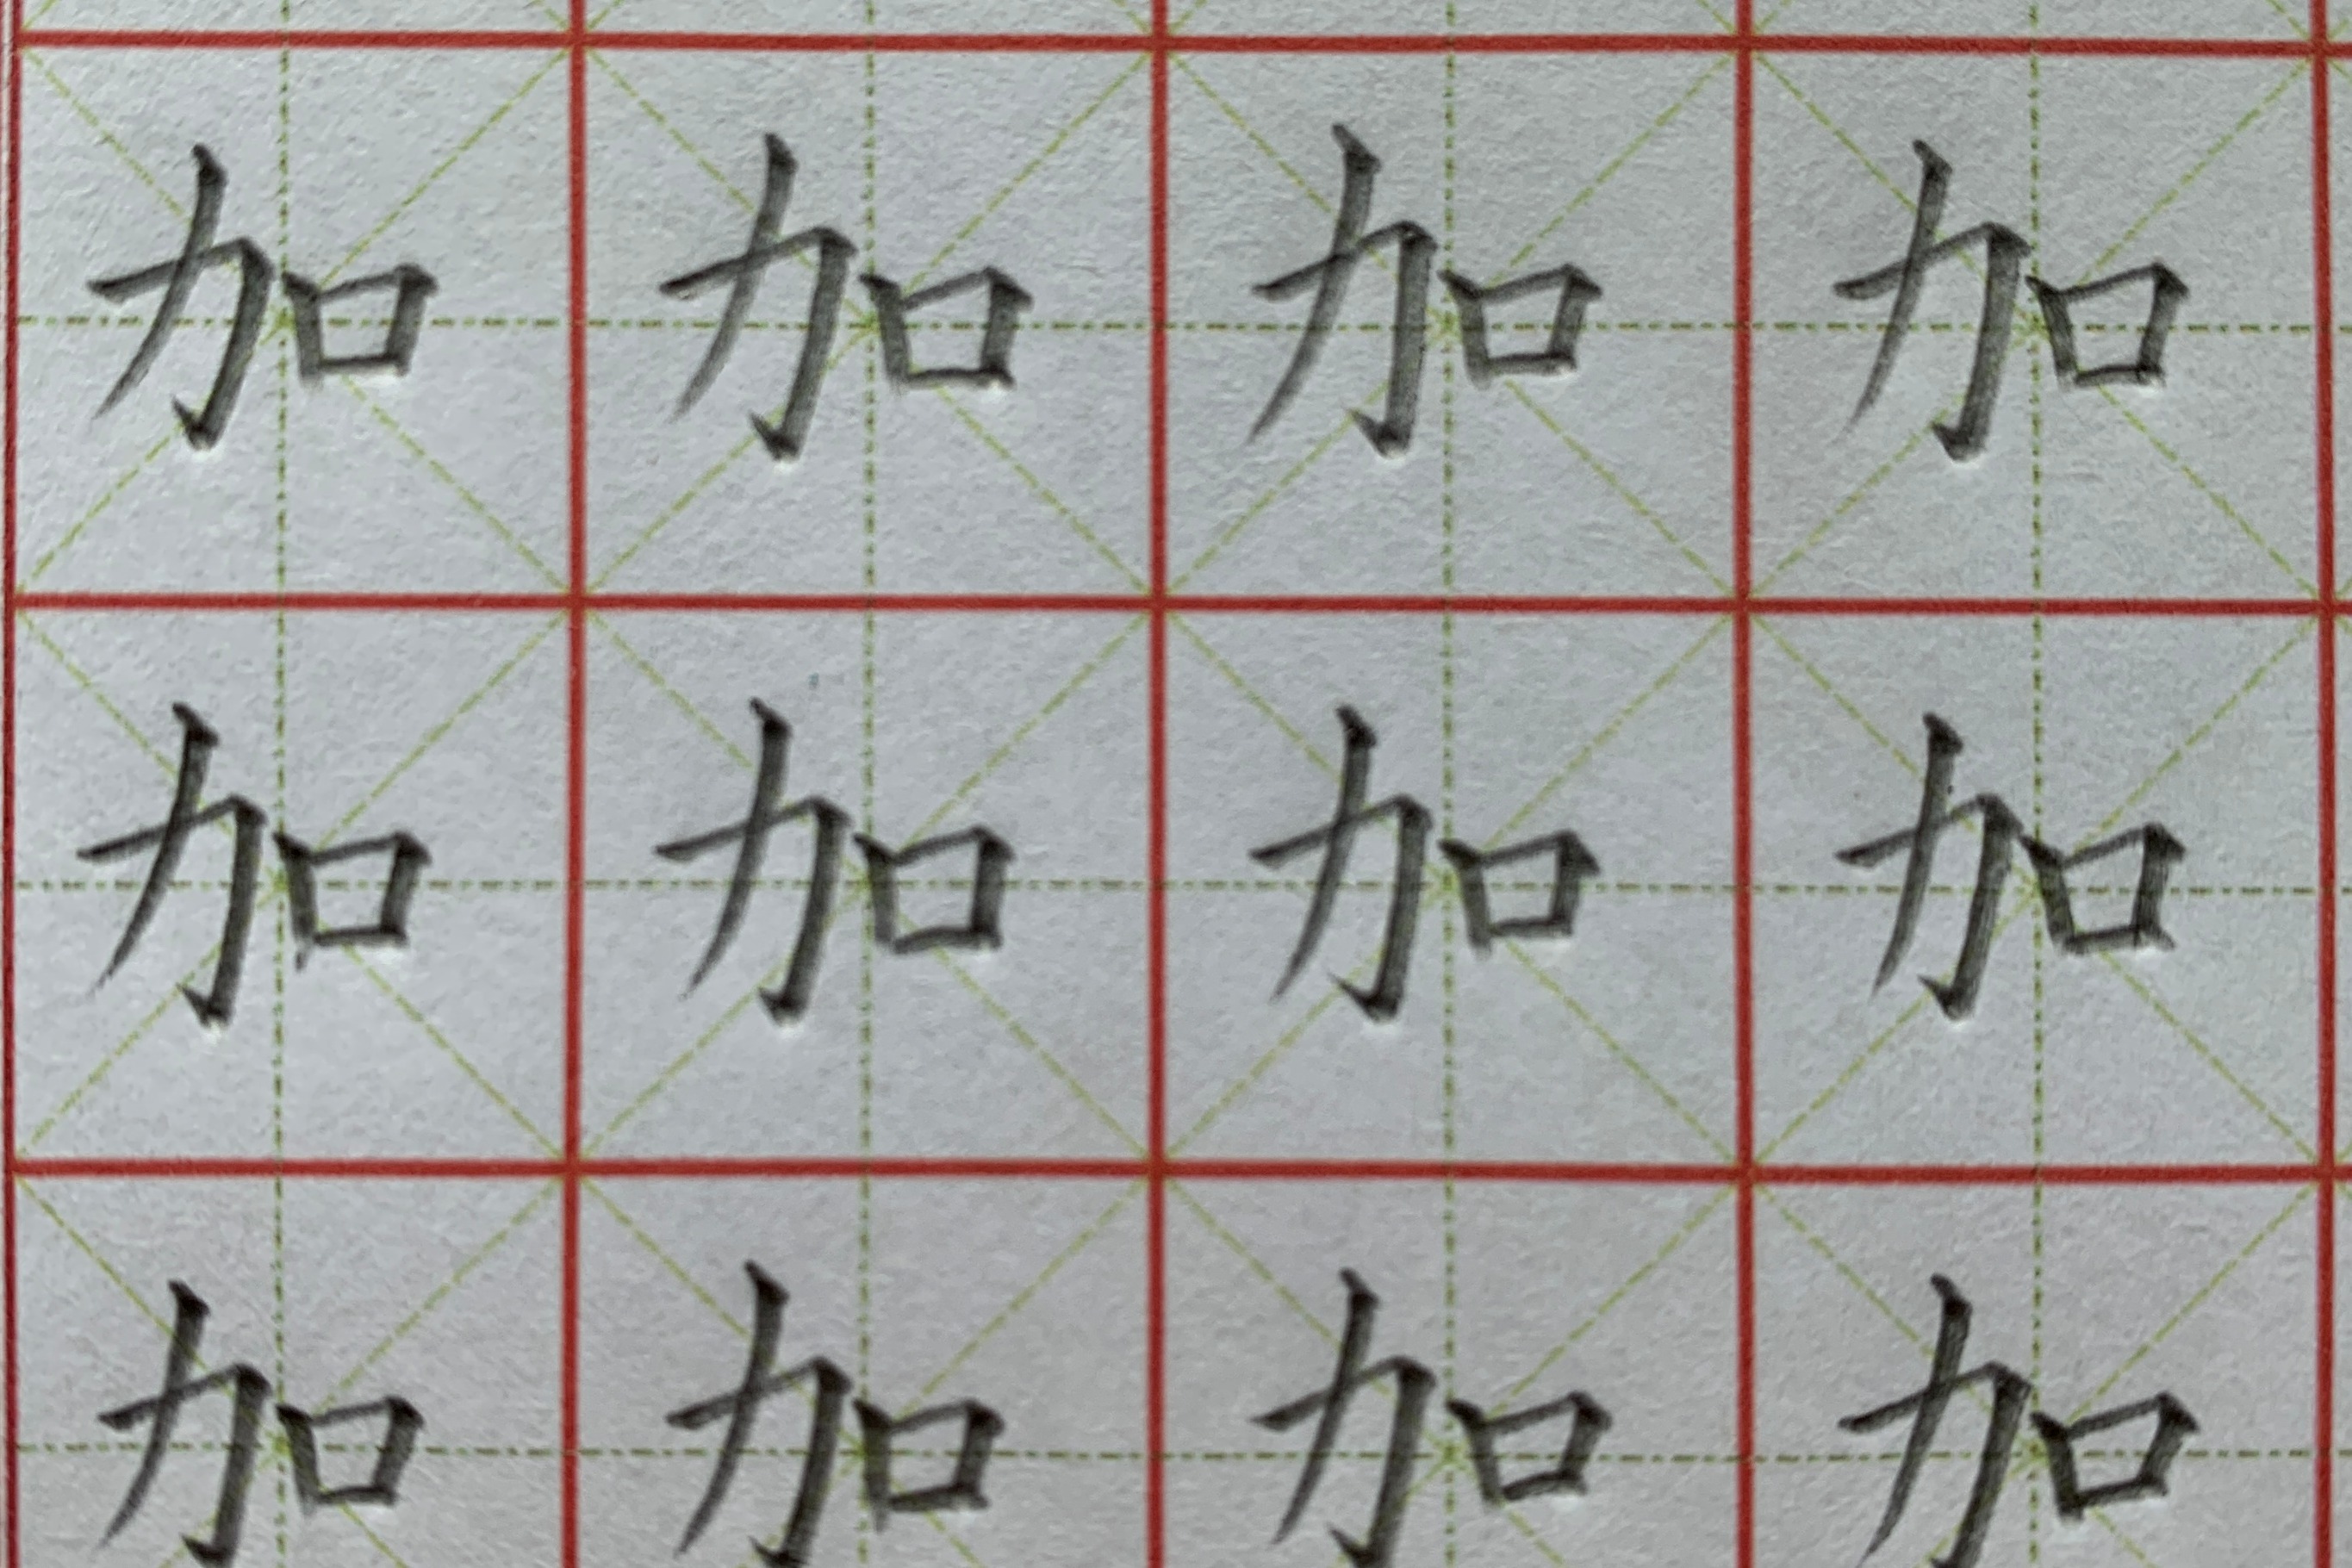 加加加加
加加加加
加加加加